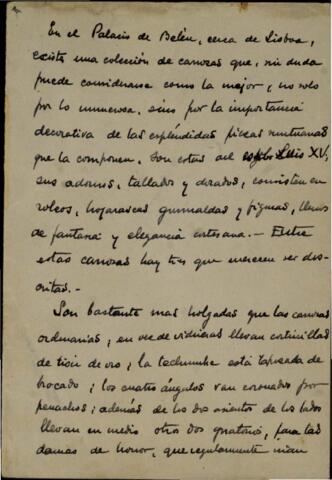 En el Palacio de Belén, cerca de Lisboa,
existe una colección de carrozas que, sin duda
puede considerarse como la mejor, no solo
por lo numerosa, sino por la importancia
decorativa de las espléndidas piezas suntuarias
que la componen. Son estas del siglo Luis XV,
sus adornos, tallados y dorados, consisten en
roleos, hojarascas guirnaldas y figuras, llenos
de fantasía y elegancia cortesana. — Entre
estas carrozas hay tres que merecen ser des-
critas. -
Son bastante mas holgadas que las carrozas
ordinarias, en vez de vidrieras llevan cortinillas
de tisú de oro; la techumbre está tapizada de
brocado; los cuatro ángulos van coronados por
penachos; además de los dos asientos de los lados
llevan en medio otros dos giratorios, para las
damas de honor, que regularmente irían